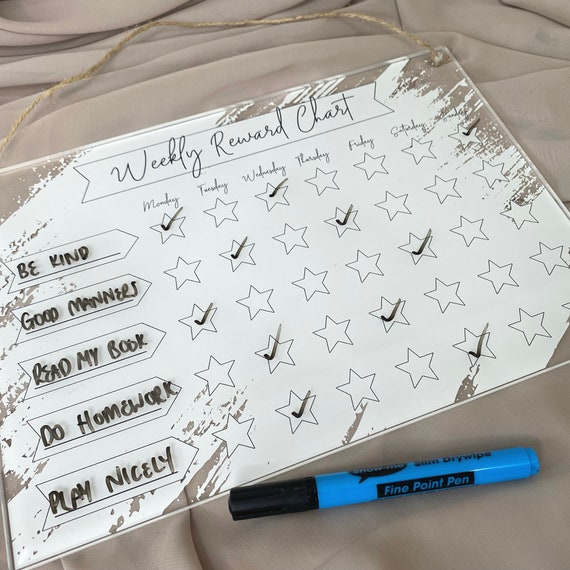 Weekly Reward Chart
Monday Tuesday Wednesday Thursday Friday Saturday Sunday
BE KIND
GOOD MANNERS
READ MY BOOK
DO HOMEWORK
PLAY NICELY
Show-me Slim Drywipe
Fine Point Pen